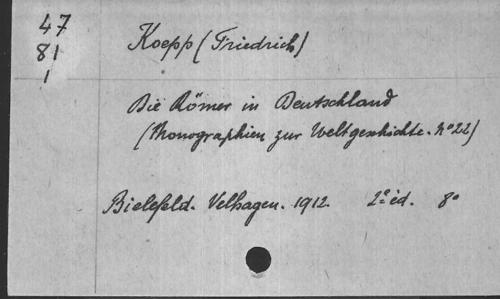 47
81
1
Koepp (Friedrich)
Die Römer in Deutschland
(Monographien zur Weltgeschichte. No 22)
Bielefeld. Velhagen. 1912. 2e éd. 8o